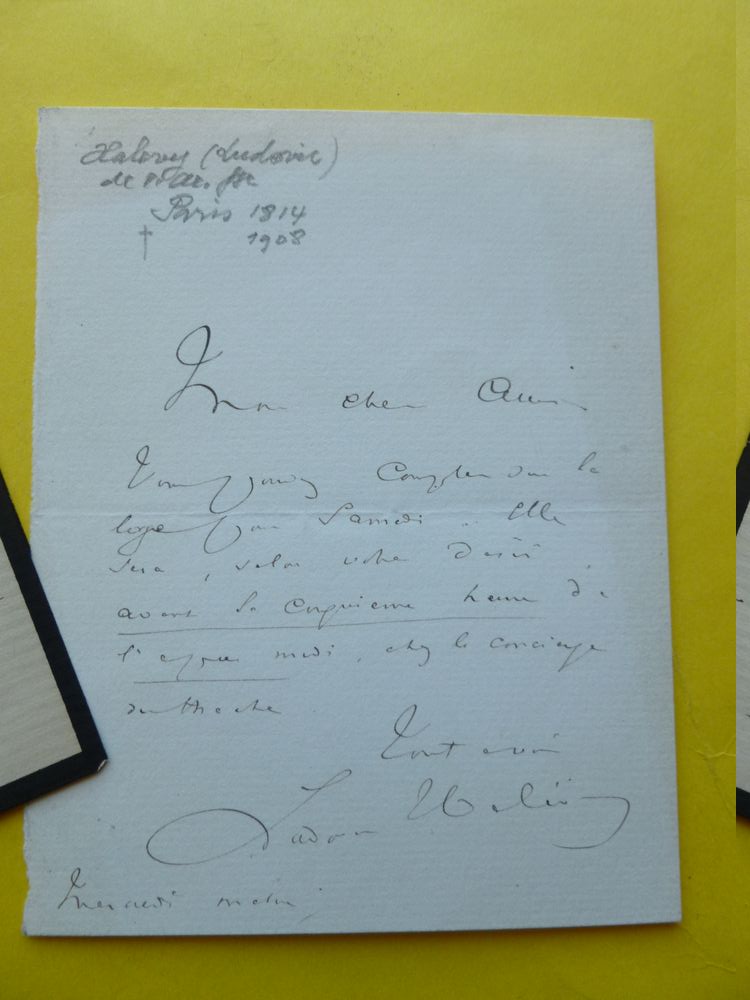 Halevy (Ludovic)
de
Paris 1814
† 1908
Mon cher Ami
Vous pouvez compter sur la
loge pour Samedi .. Elle
sera, selon votre désir
avant la cinquieme heure de
l'apres midi, chez le concierge
du theatre.
Tout à vous
Ludovic Halévy
Mercredi matin